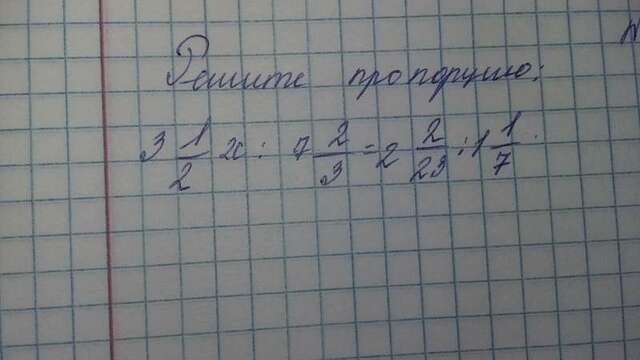 Решите пропорцию:
3 1/2 x : 7 2/3 = 2 2/23 : 1 1/7.